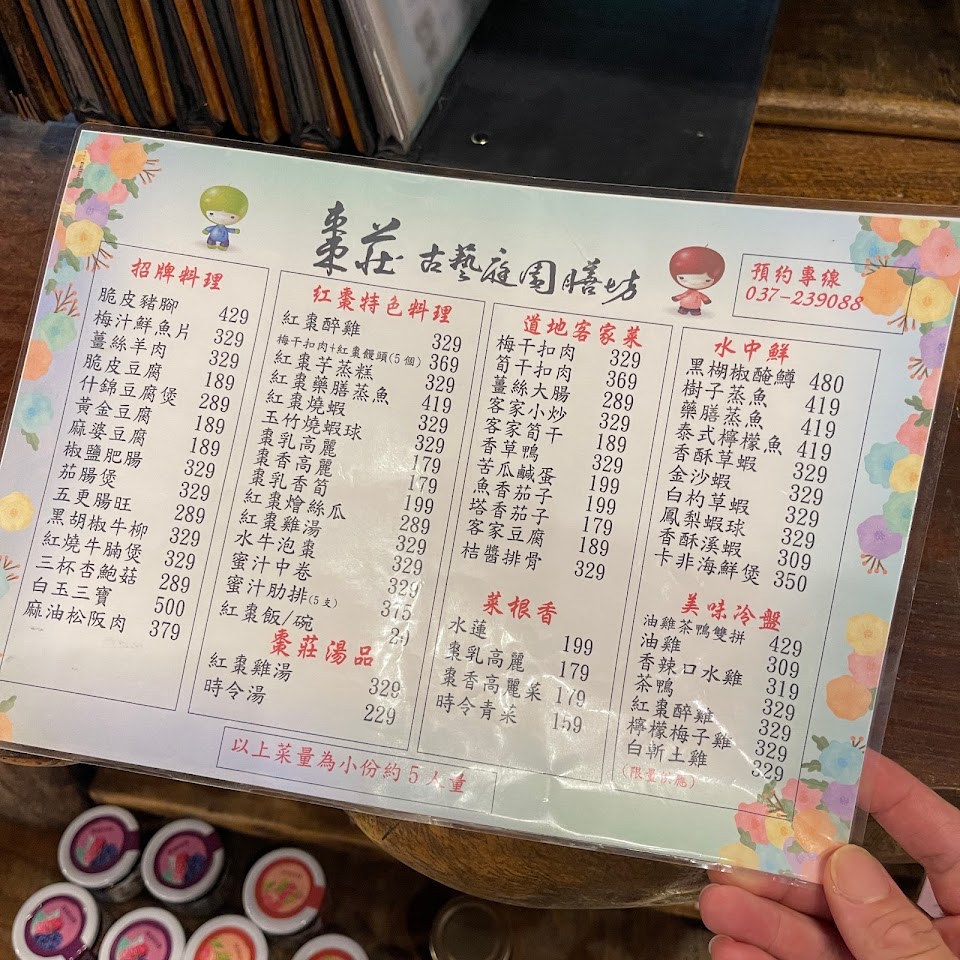 棗莊 古藝庭園膳坊
預約專線
037-239088
招牌料理
脆皮豬腳 429
梅汁鮮魚片 329
薑絲羊肉 329
脆皮豆腐 189
什錦豆腐煲 289
黃金豆腐 189
麻婆豆腐 189
椒鹽肥腸 329
茄腸煲 329
五更腸旺 289
黑胡椒牛柳 329
紅燒牛腩煲 329
三杯杏鮑菇 289
白玉三寶 500
麻油松阪肉 379
紅棗特色料理
紅棗醉雞 329
梅干扣肉+紅棗饅頭(5個) 369
紅棗芋蒸糕 329
紅棗藥膳蒸魚 419
紅棗燒蝦 329
玉竹燒蝦球 329
棗乳高麗 179
棗香高麗 179
棗乳香筍 199
紅棗燴絲瓜 289
紅棗雞湯 329
水牛泡棗 329
蜜汁中卷 329
蜜汁肋排(5支) 375
紅棗飯/碗 20
棗莊湯品
紅棗雞湯 329
時令湯 229
道地客家菜
梅干扣肉 329
筍干扣肉 369
薑絲大腸 289
客家小炒 329
客家筍干 189
香草鴨 329
苦瓜鹹蛋 199
魚香茄子 199
塔香茄子 179
客家豆腐 189
桔醬排骨 329
菜根香
水蓮 199
棗乳高麗 179
棗香高麗菜 179
時令青菜 159
水中鮮
黑楜椒醃鱒 480
樹子蒸魚 419
藥膳蒸魚 419
泰式檸檬魚 419
香酥草蝦 329
金沙蝦 329
白杓草蝦 329
鳳梨蝦球 329
香酥溪蝦 309
卡非海鮮煲 350
美味冷盤
油雞茶鴨雙拼 429
油雞 309
香辣口水雞 319
茶鴨 329
紅棗醉雞 329
檸檬梅子雞 329
白斬土雞 329
(限量供應)
以上菜量為小份約5人量